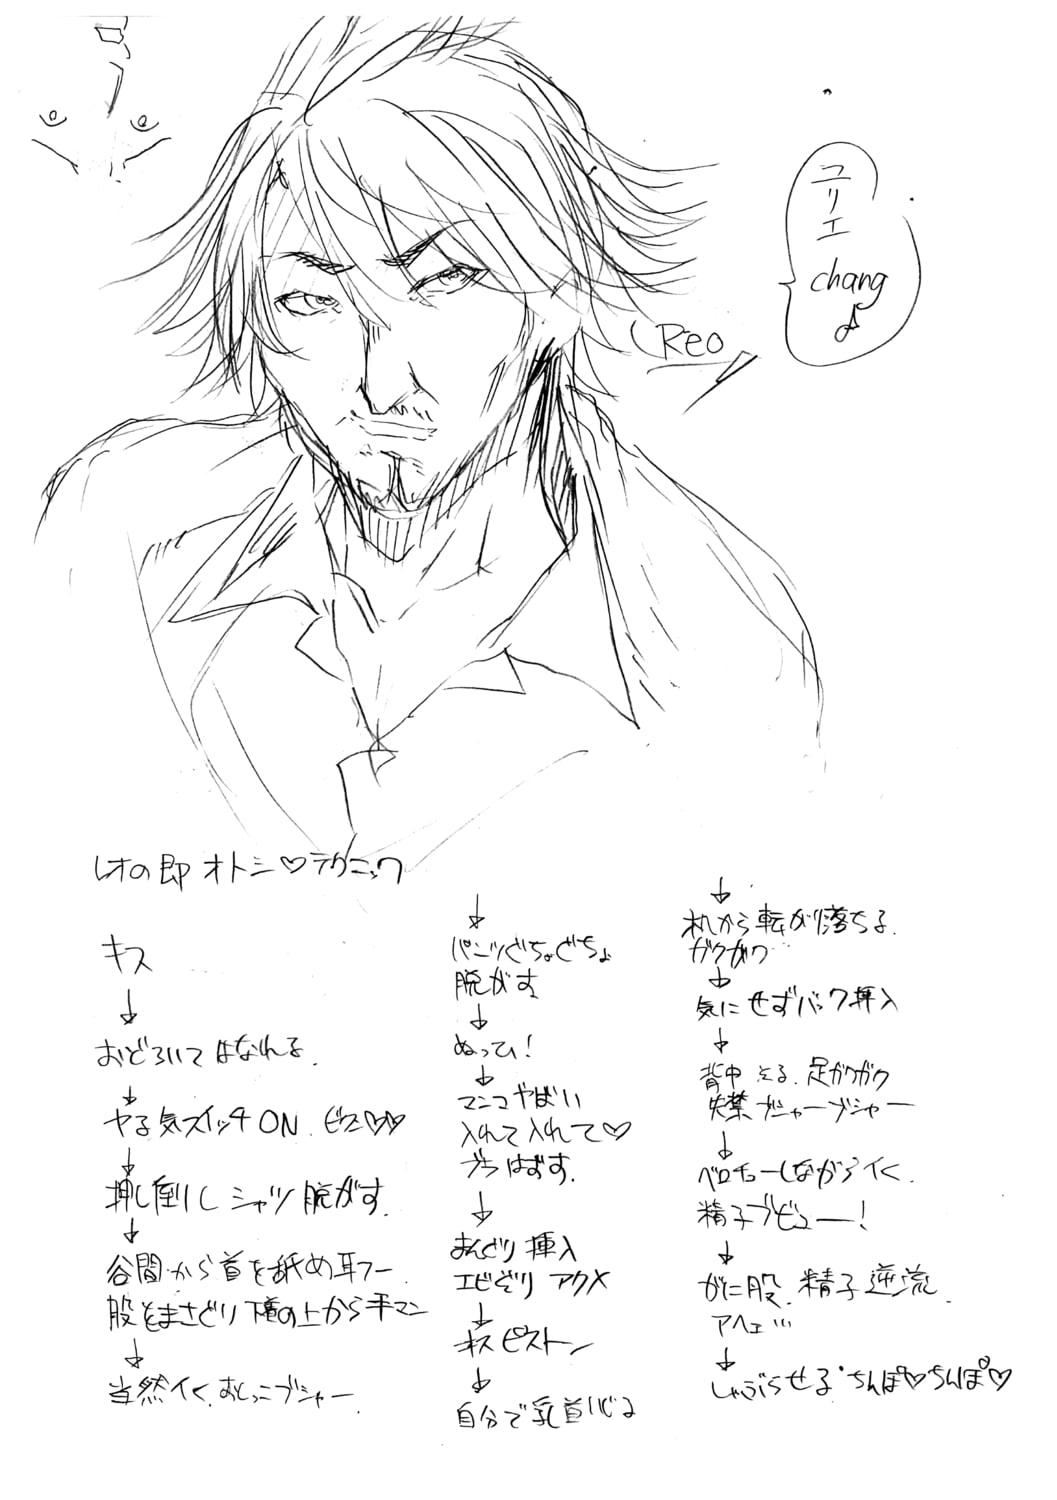 ユリエ
chang
Reo
レオの即オトシ♡テクニック
キス
↓
おどろいてはなれる.
↓
ヤる気スイッチON. ビクニ♡♡
↓
押し倒しシャツ脱がす.
↓
谷間から首を舐め耳フー
股をまさぐり下着の上から手マン
↓
当然イく. おしっこブシャー.
↓
パンツぐちょぐちょ
脱がす
↓
ぬっひ!
↓
マンコやばい
入れて入れて♡
ブラはずす.
↓
まんぐり挿入
エビぞりアクメ
↓
キスピストン
↓
自分で乳首いじる
↓
机から転がり落ちる.
ガクガク
↓
気にせずバック挿入
↓
背中そる. 足ガクガク
失禁ブシャーブシャー
↓
ベロチューしながらイく.
精子ブビュー!
↓
がに股. 精子逆流.
アヘェ…
↓
しゃぶらせる・ちんぽ♡ちんぽ♡